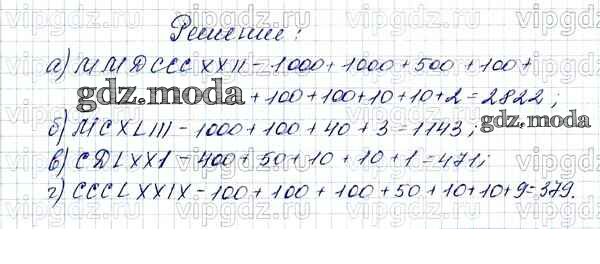 Решение:
а) MMDCCCXXII - 1000 + 1000 + 500 + 100 +
+ 100 + 100 + 10 + 10 + 2 = 2822;
gdz.moda
gdz.moda
б) MCXLIII - 1000 + 100 + 40 + 3 = 1143;
в) CDLXXI - 400 + 50 + 10 + 10 + 1 = 471;
г) CCCLXXIX - 100 + 100 + 100 + 50 + 10 + 10 + 9 = 379.
vipgdz.ru